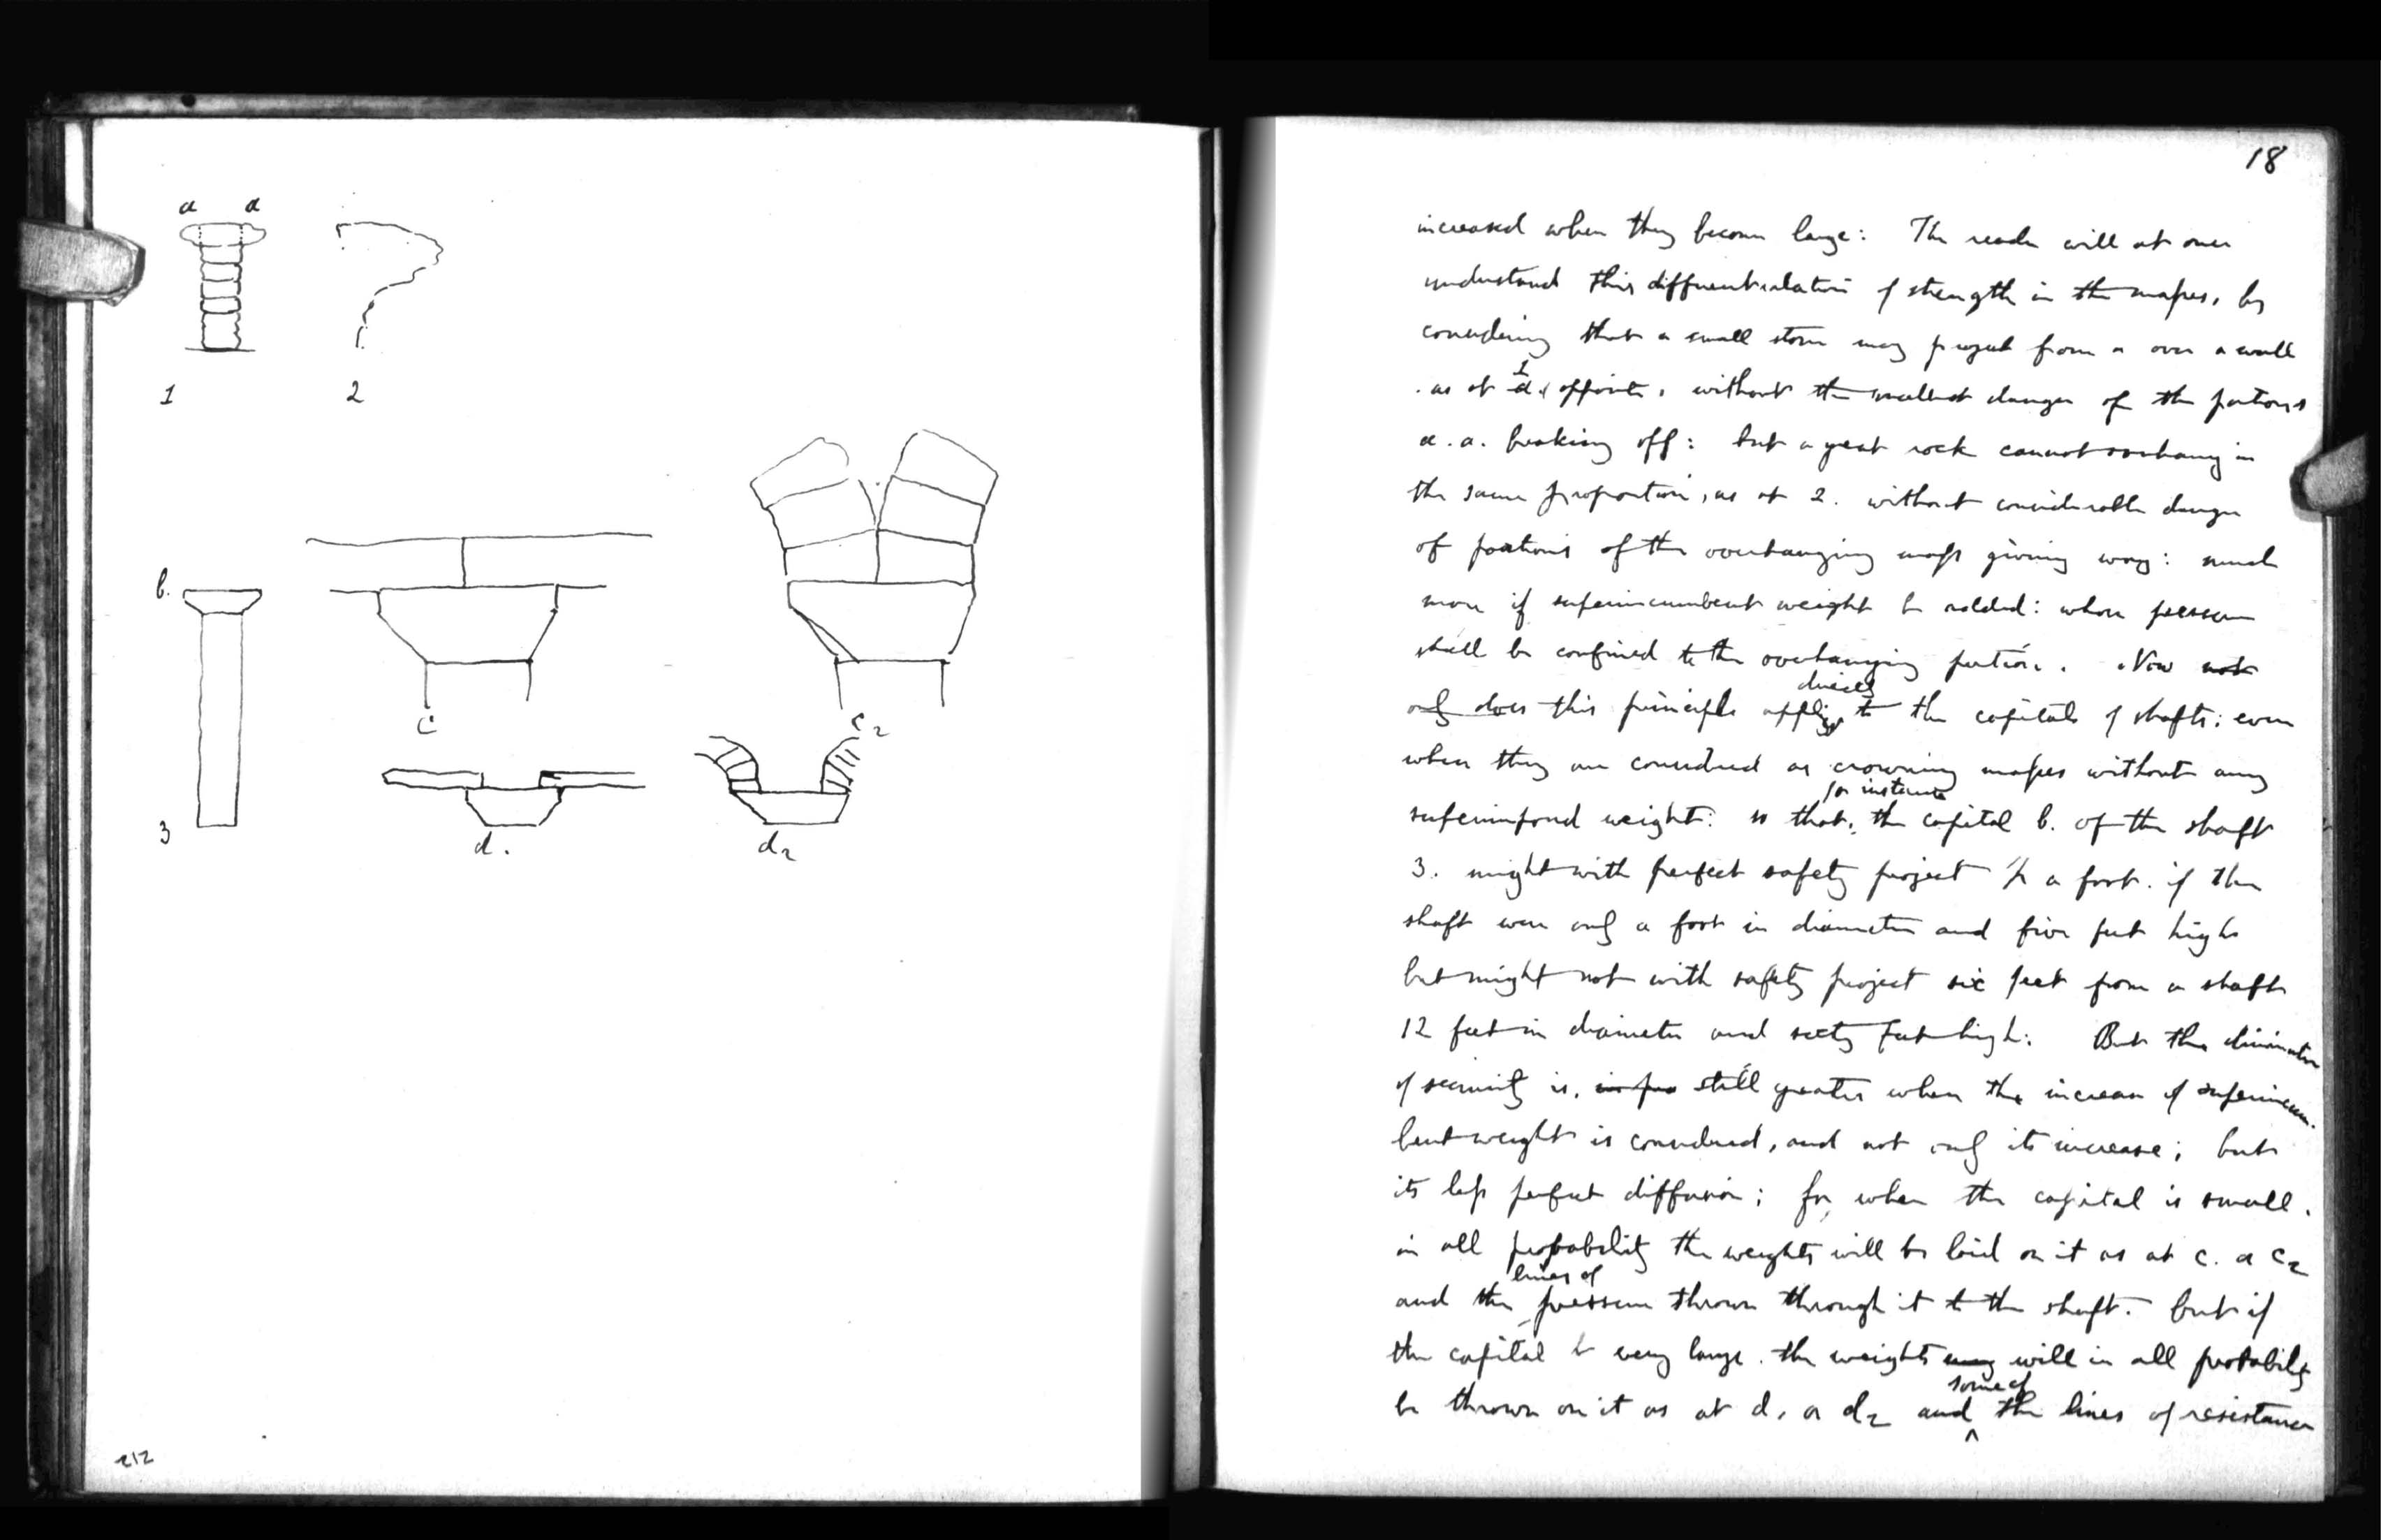 a a
1 2
b.
c c2
3
d. d2
212
18
increased when they become large: The reader will at once
understand this differentialation of strength in the masses, by
considering that a small stone may project from a over a wall
as at 1 a. opposite, without the smallest danger of the portions
a. a. breaking off: but a great rock cannot overhang in
the same proportion, as at 2. without considerable danger
of portions of the overhanging mass giving way: much
more if superincumbent weight be added: whose pressure
shall be confined to the overhanging portion. Now not
only does this principle applies directly to the capitals of shafts: even
when they are considered as crowning masses without any
superimposed weight: so that, for instance the capital b. of the shaft
3. might with perfect safety project 1/2 a foot. if the
shaft were only a foot in diameter and five feet high
but might not with safety project six feet from a shaft
12 feet in diameter and sixty feet high: But the diminution
of security is, still greater when the increase of superincum-
bent weight is considered, and not only its increase; but
its less perfect diffusion; for, when the capital is small.
in all probability the weights will be laid on it as at c. or c2
and the lines of pressure thrown through it to the shaft. but if
the capital be very large. the weights may will in all probability
be thrown on it as at d, or d2 and some of the lines of resistance